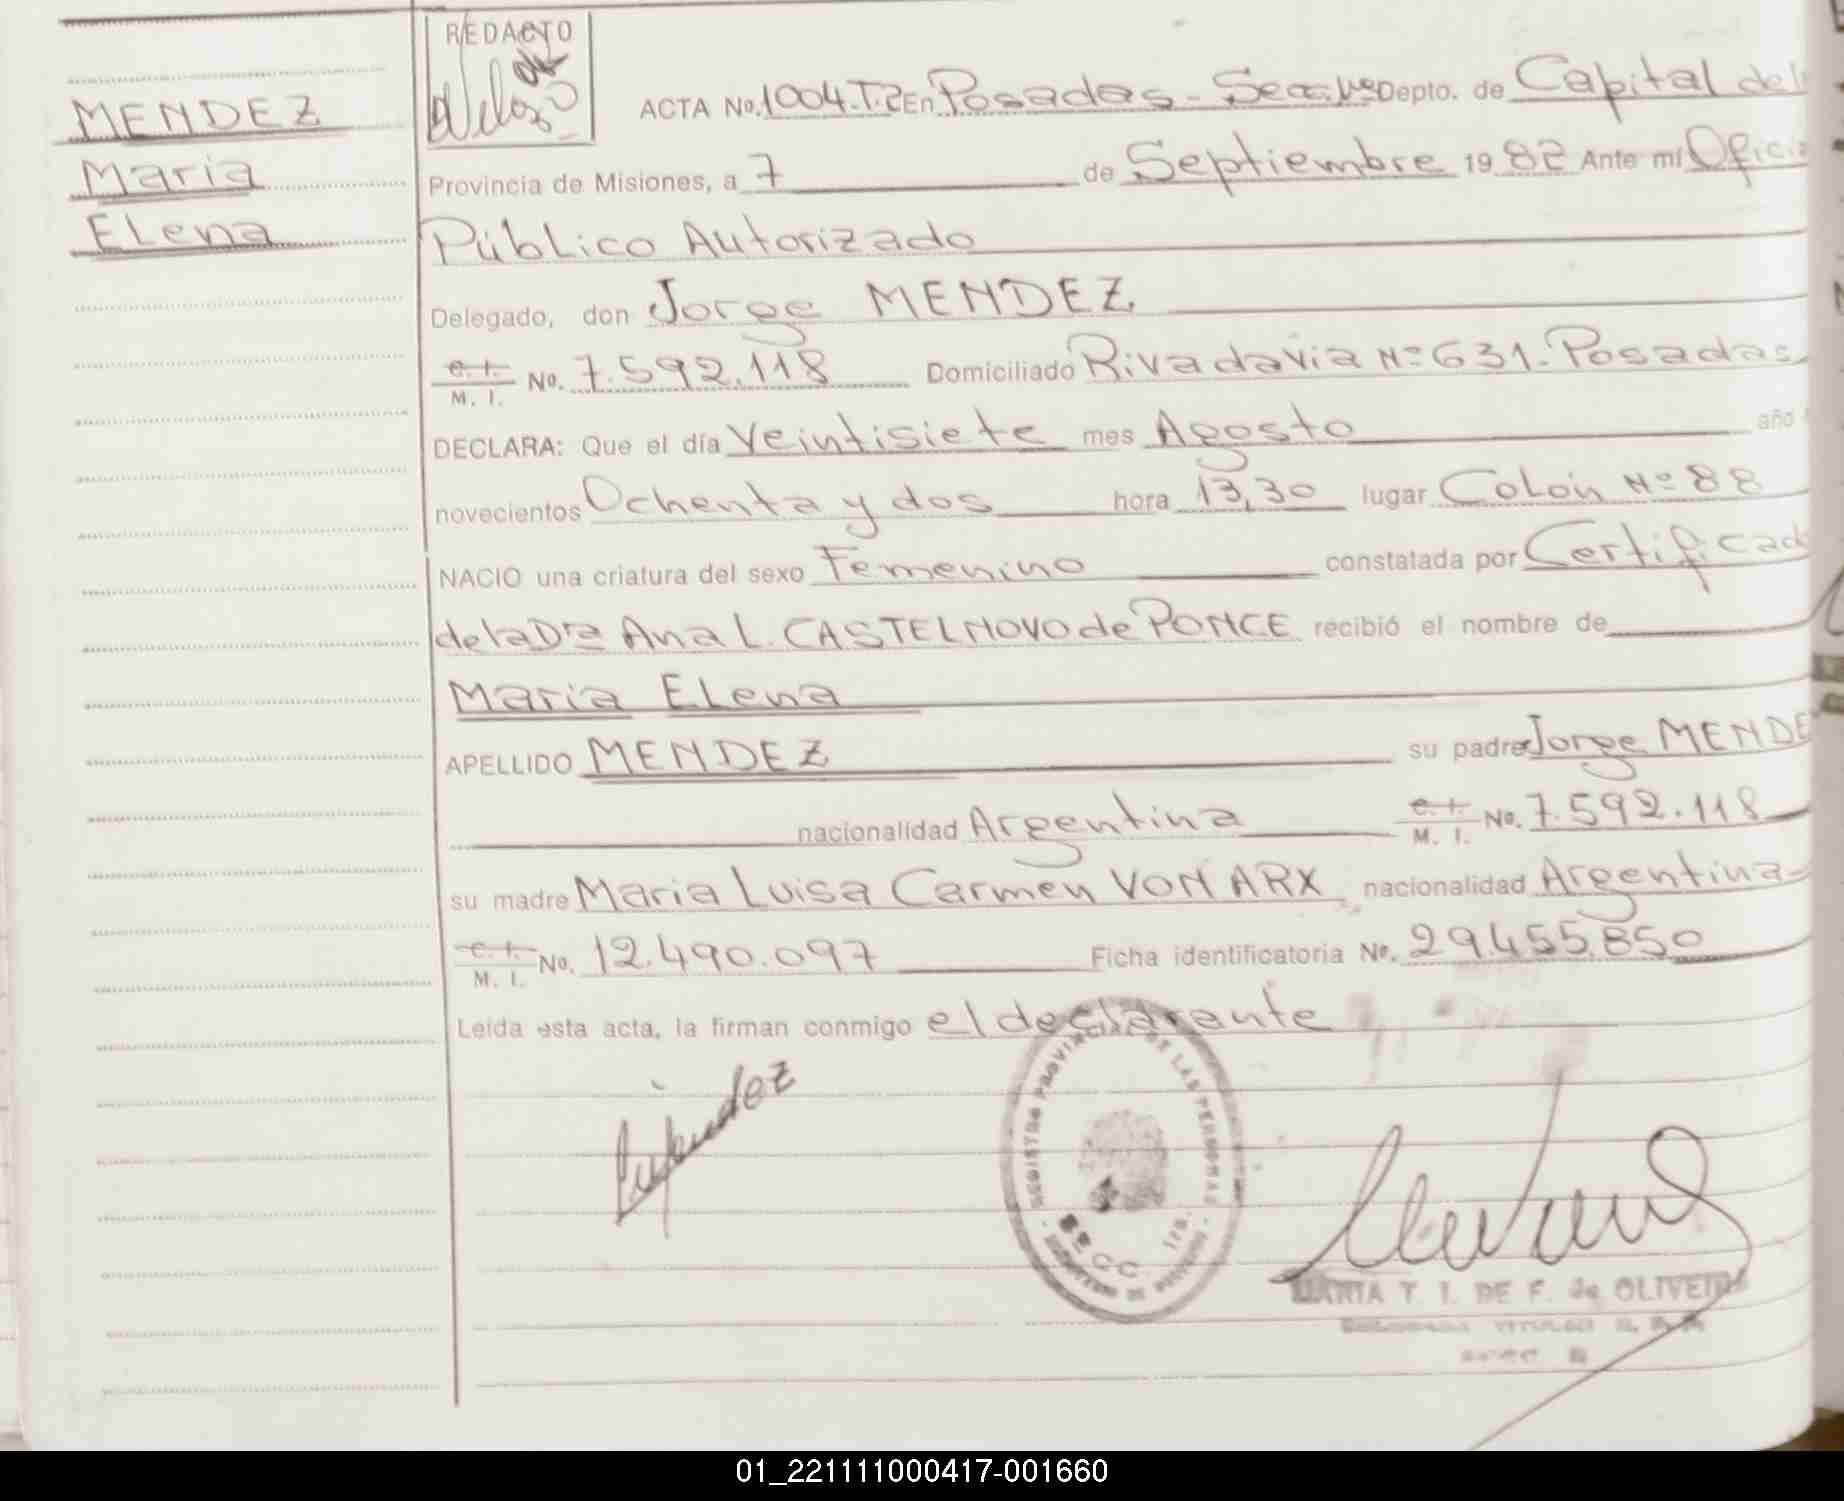 MENDEZ
Maria
Elena
REDACTO
ACTA No. 1004.T.2 En Posadas - Secc. 1ra Depto. de Capital del
Provincia de Misiones, a 7 de Septiembre 1982 Ante mí Oficia
Público Autorizado
Delegado, don Jorge MENDEZ
C. I. M. I. No. 7.592.118 Domiciliado Rivadavia Nº 631.- Posadas
DECLARA: Que el día Veintisiete mes Agosto año
novecientos Ochenta y dos hora 13,30 lugar Colón Nº 88
NACIO una criatura del sexo Femenino constatada por Certificad
de la Dra Ana L. CASTELNOVO de PONCE recibió el nombre de
Maria Elena
APELLIDO MENDEZ su padre Jorge MENDE
nacionalidad Argentina C. I. M. I. No. 7.592.118
su madre Maria Luisa Carmen VON ARX nacionalidad Argentina
C. I. M. I. No. 12.490.097 Ficha identificatoria No. 29.455.850
Leída esta acta, la firman conmigo el declarante
REGISTRO PROVINCIAL DE LAS PERSONAS
SECC 1ra.
MARIA T. I. DE F. de OLIVEIRA
01_221111000417-001660